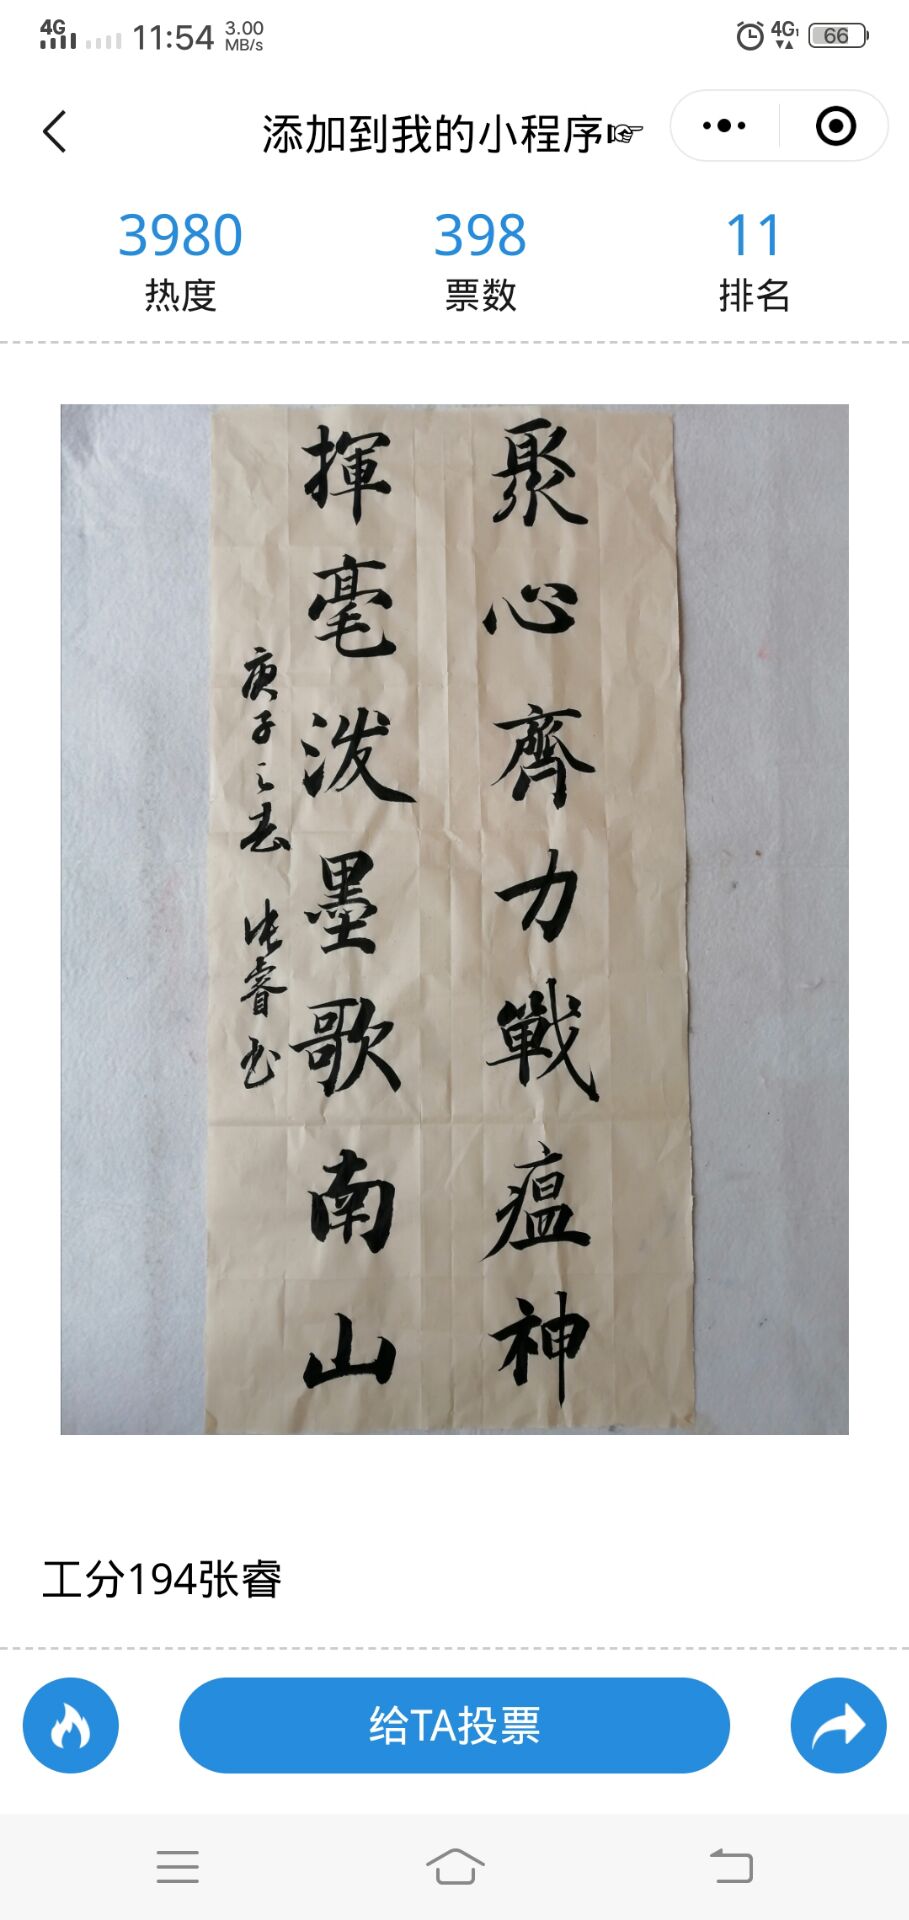 4G 11:54 3.00 MB/s 4G 66
添加到我的小程序
3980 398 11
热度 票数 排名
聚心齊力戰瘟神
揮毫泼墨歌南山
庚子之春 张睿书
工分194张睿
给TA投票